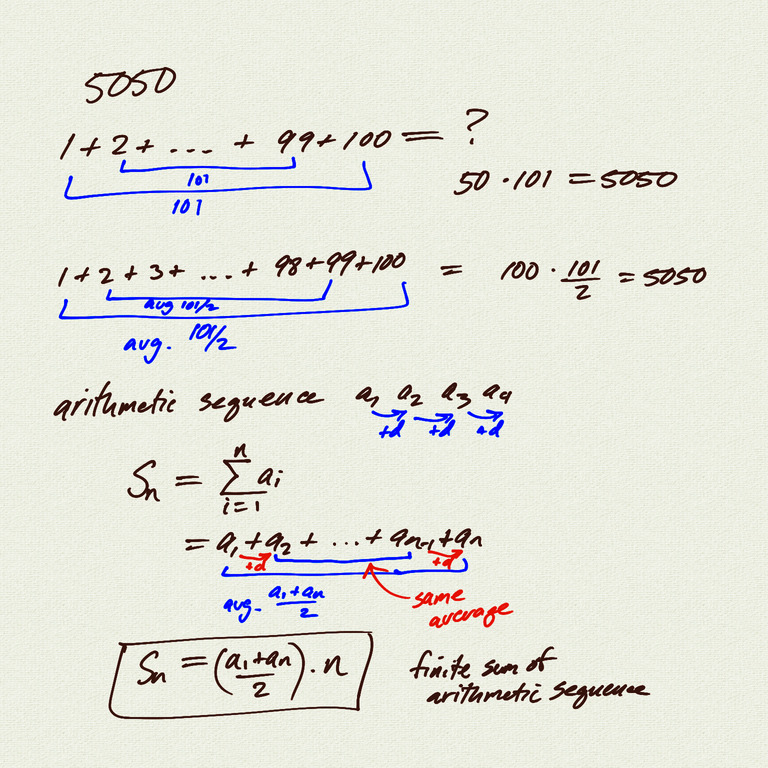 5050
1 + 2 + .... + 99 + 100 = ?
101
101
50 · 101 = 5050
1 + 2 + 3 + .... + 98 + 99 + 100 = 100 · 101/2 = 5050
avg 101/2
avg. 101/2
arithmetic sequence a₁ a₂ a₃ a₄
+d +d +d
Sₙ = ∑ᵢ₌₁ⁿ aᵢ
= a₁ + a₂ + ... + aₙ₋₁ + aₙ
+d +d
avg. (a₁ + aₙ)/2
same
average
Sₙ = ((a₁ + aₙ)/2) · n
finite sum of
arithmetic sequence